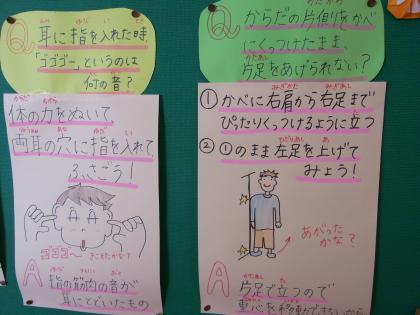 Q 耳に指を入れた時
「ゴゴゴー」というのは
何の音？
体の力をぬいて
両耳の穴に指を入れて
ふさごう！
ゴゴゴ〜 きこえたかな？
A 指の筋肉の音が
耳にとどいたもの
Q からだの片側をかべ
にくっつけたまま、
片足をあげられない？
① かべに右肩から右足まで
ぴったりくっつけるように立つ
② ①のまま左足を上げて
みよう！
あがった
かな？
A 片足で立つので
重心を移動できないから